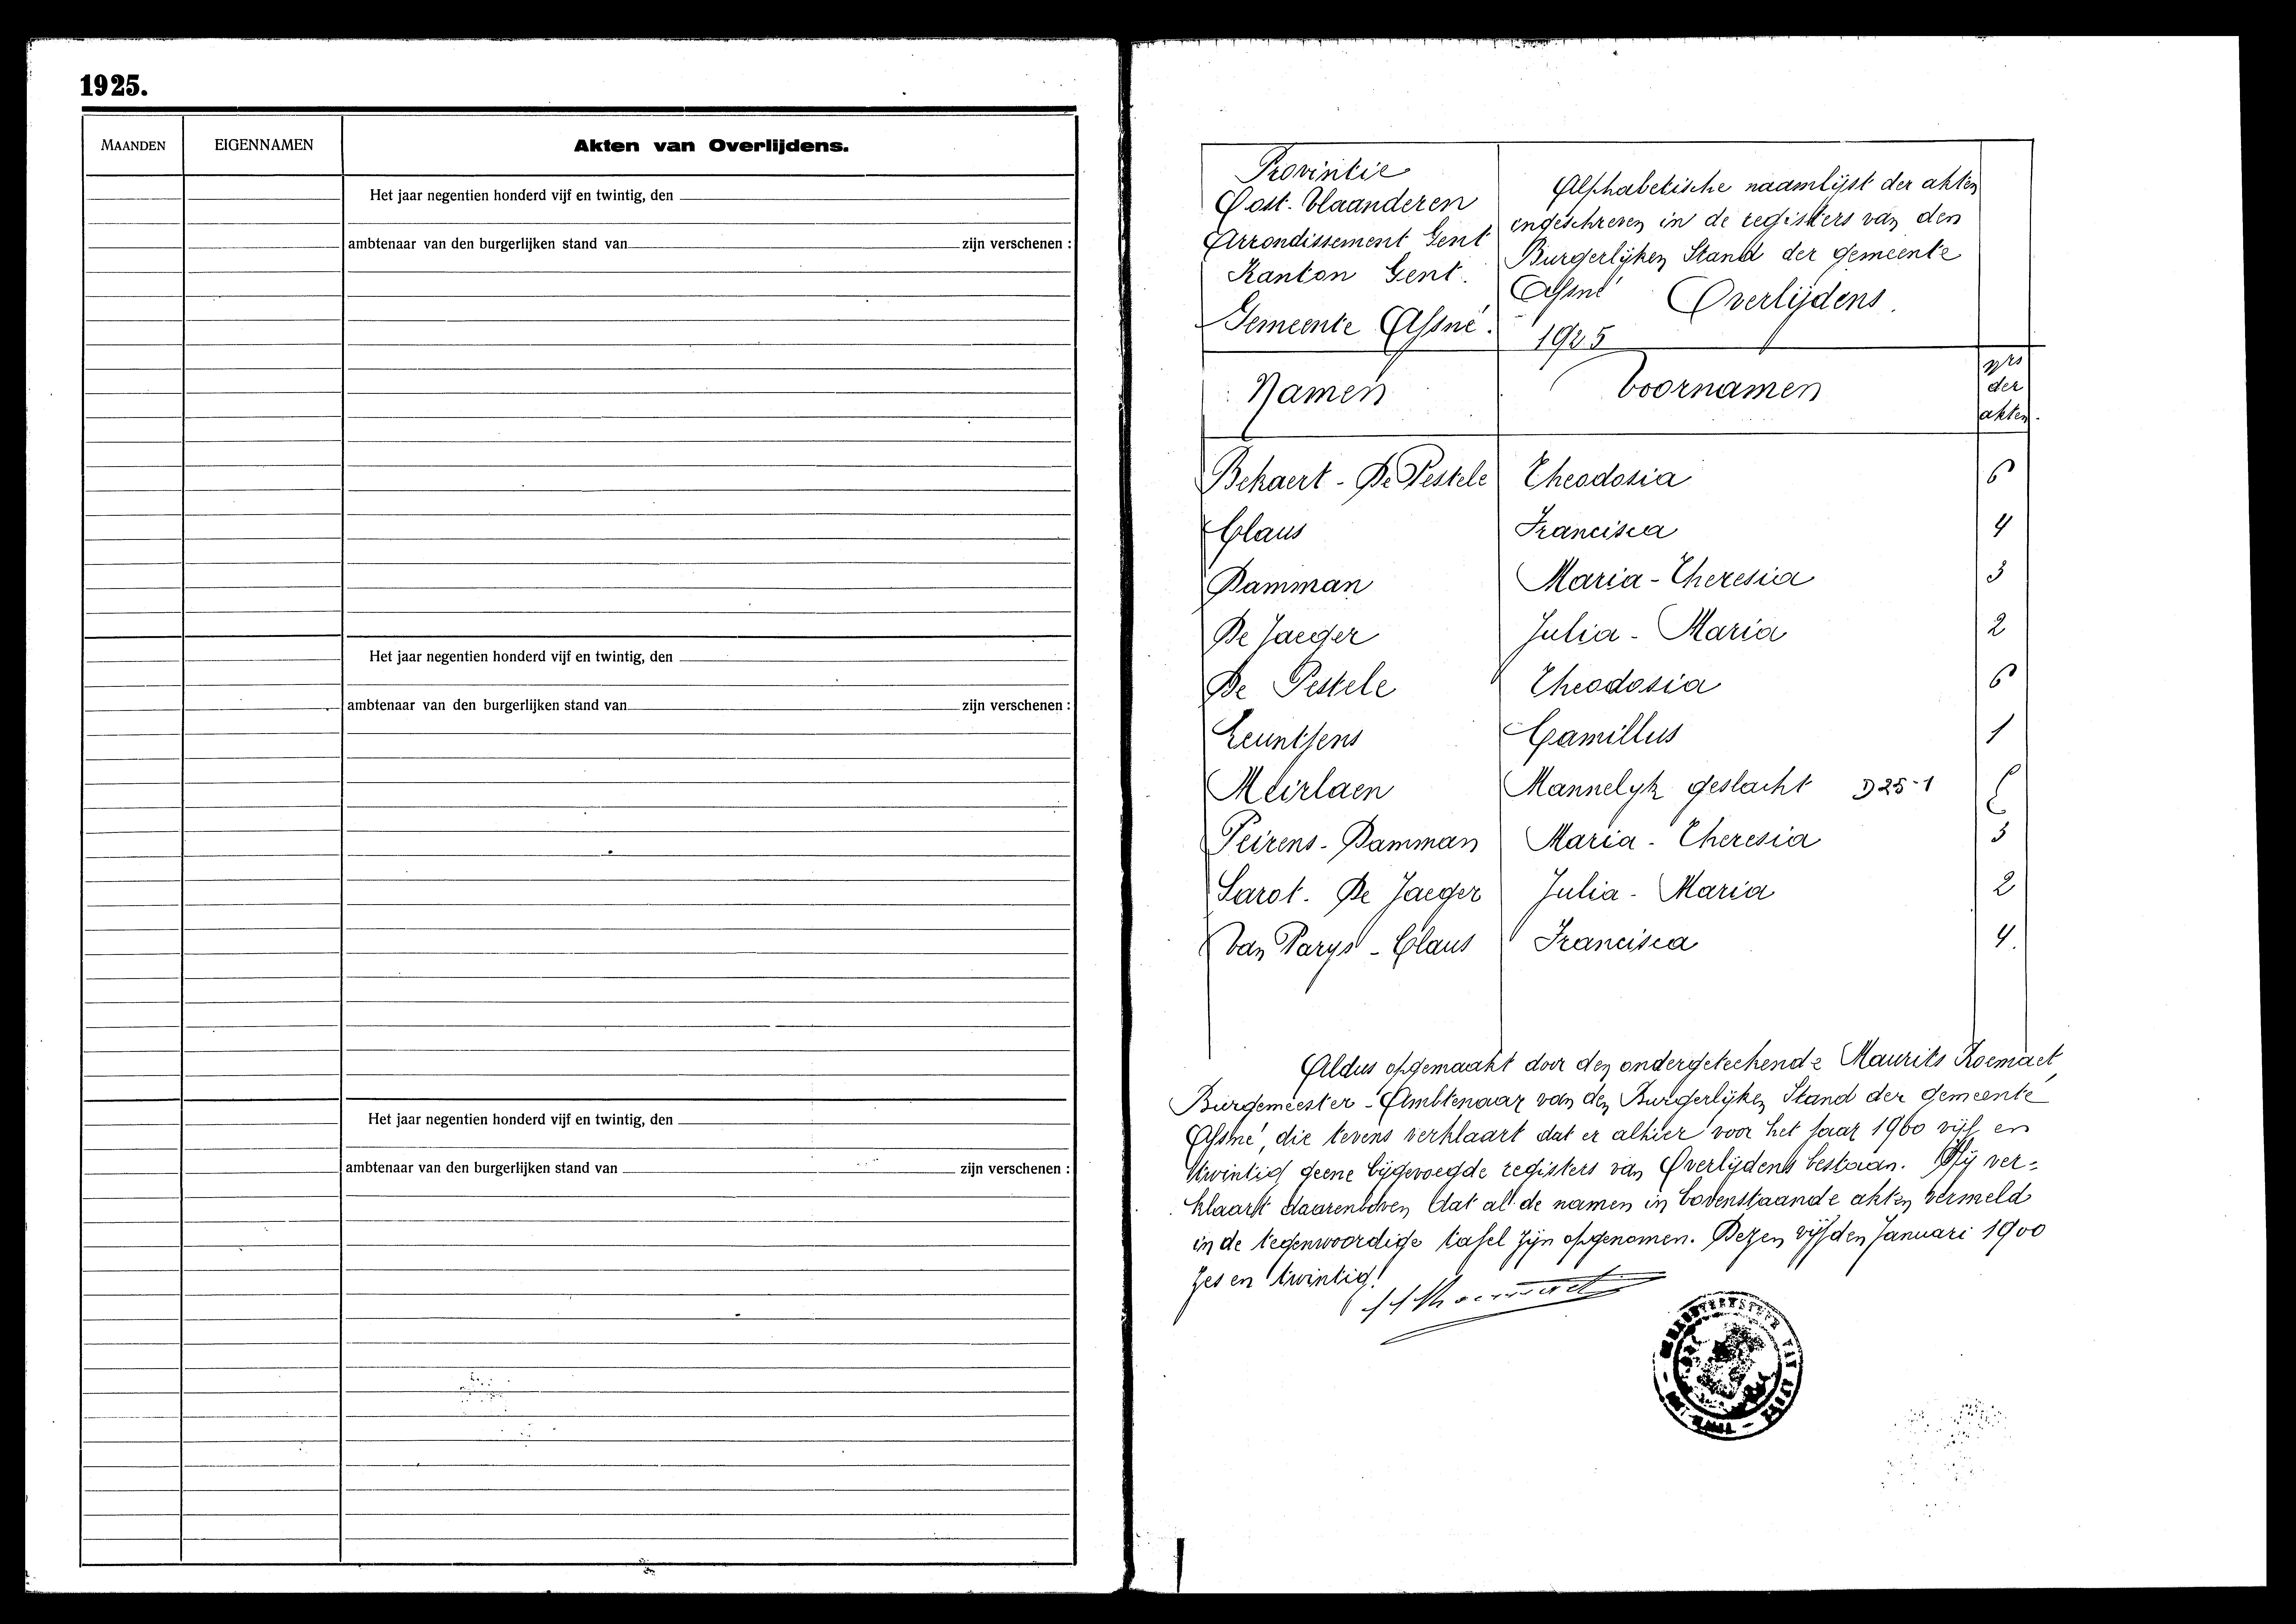 1925.
MAANDEN EIGENNAMEN Akten van Overlijdens.
Het jaar negentien honderd vijf en twintig, den
ambtenaar van den burgerlijken stand van zijn verschenen :
Het jaar negentien honderd vijf en twintig, den
ambtenaar van den burgerlijken stand van zijn verschenen :
Het jaar negentien honderd vijf en twintig, den
ambtenaar van den burgerlijken stand van zijn verschenen :
Provintie
Oost-Vlaanderen
Arrondissement Gent
Kanton Gent.
Gemeente Afsné.
Alphabetische naamlijst der akten
ingeschreven in de registers van den
Burgerlijken Stand der gemeente
Afsné Overlijdens.
1925
Namen Voornamen nrs
der
akten.
Bekaert - De Pestele Theodosia 6
Claus Francisca 4
Damman Maria-Theresia 3
De Jaeger Julia-Maria 2
De Pestele Theodosia 6
Leuntjens Camillus 1
Meirlaen Mannelyk geslacht D25-1
Peirens-Damman Maria-Theresia 3
Sarot. De Jaeger Julia-Maria 2
Van Parys - Claus Francisca 4.
Aldus opgemaakt door den ondergeteekende Maurits
Burgemeester-Ambtenaar van den Burgerlijken Stand der gemeente
Afsné, die tevens verklaart dat er alhier voor het jaar 1900 vijf en
twintig geene bijgevoegde registers van Overlijdens bestaan. Hij ver=
klaart daarenboven dat al de namen in bovenstaande akten vermeld
in de tegenwoordige tafel zijn opgenomen. Dezen vijfden Januari 1900
zes en twintig!